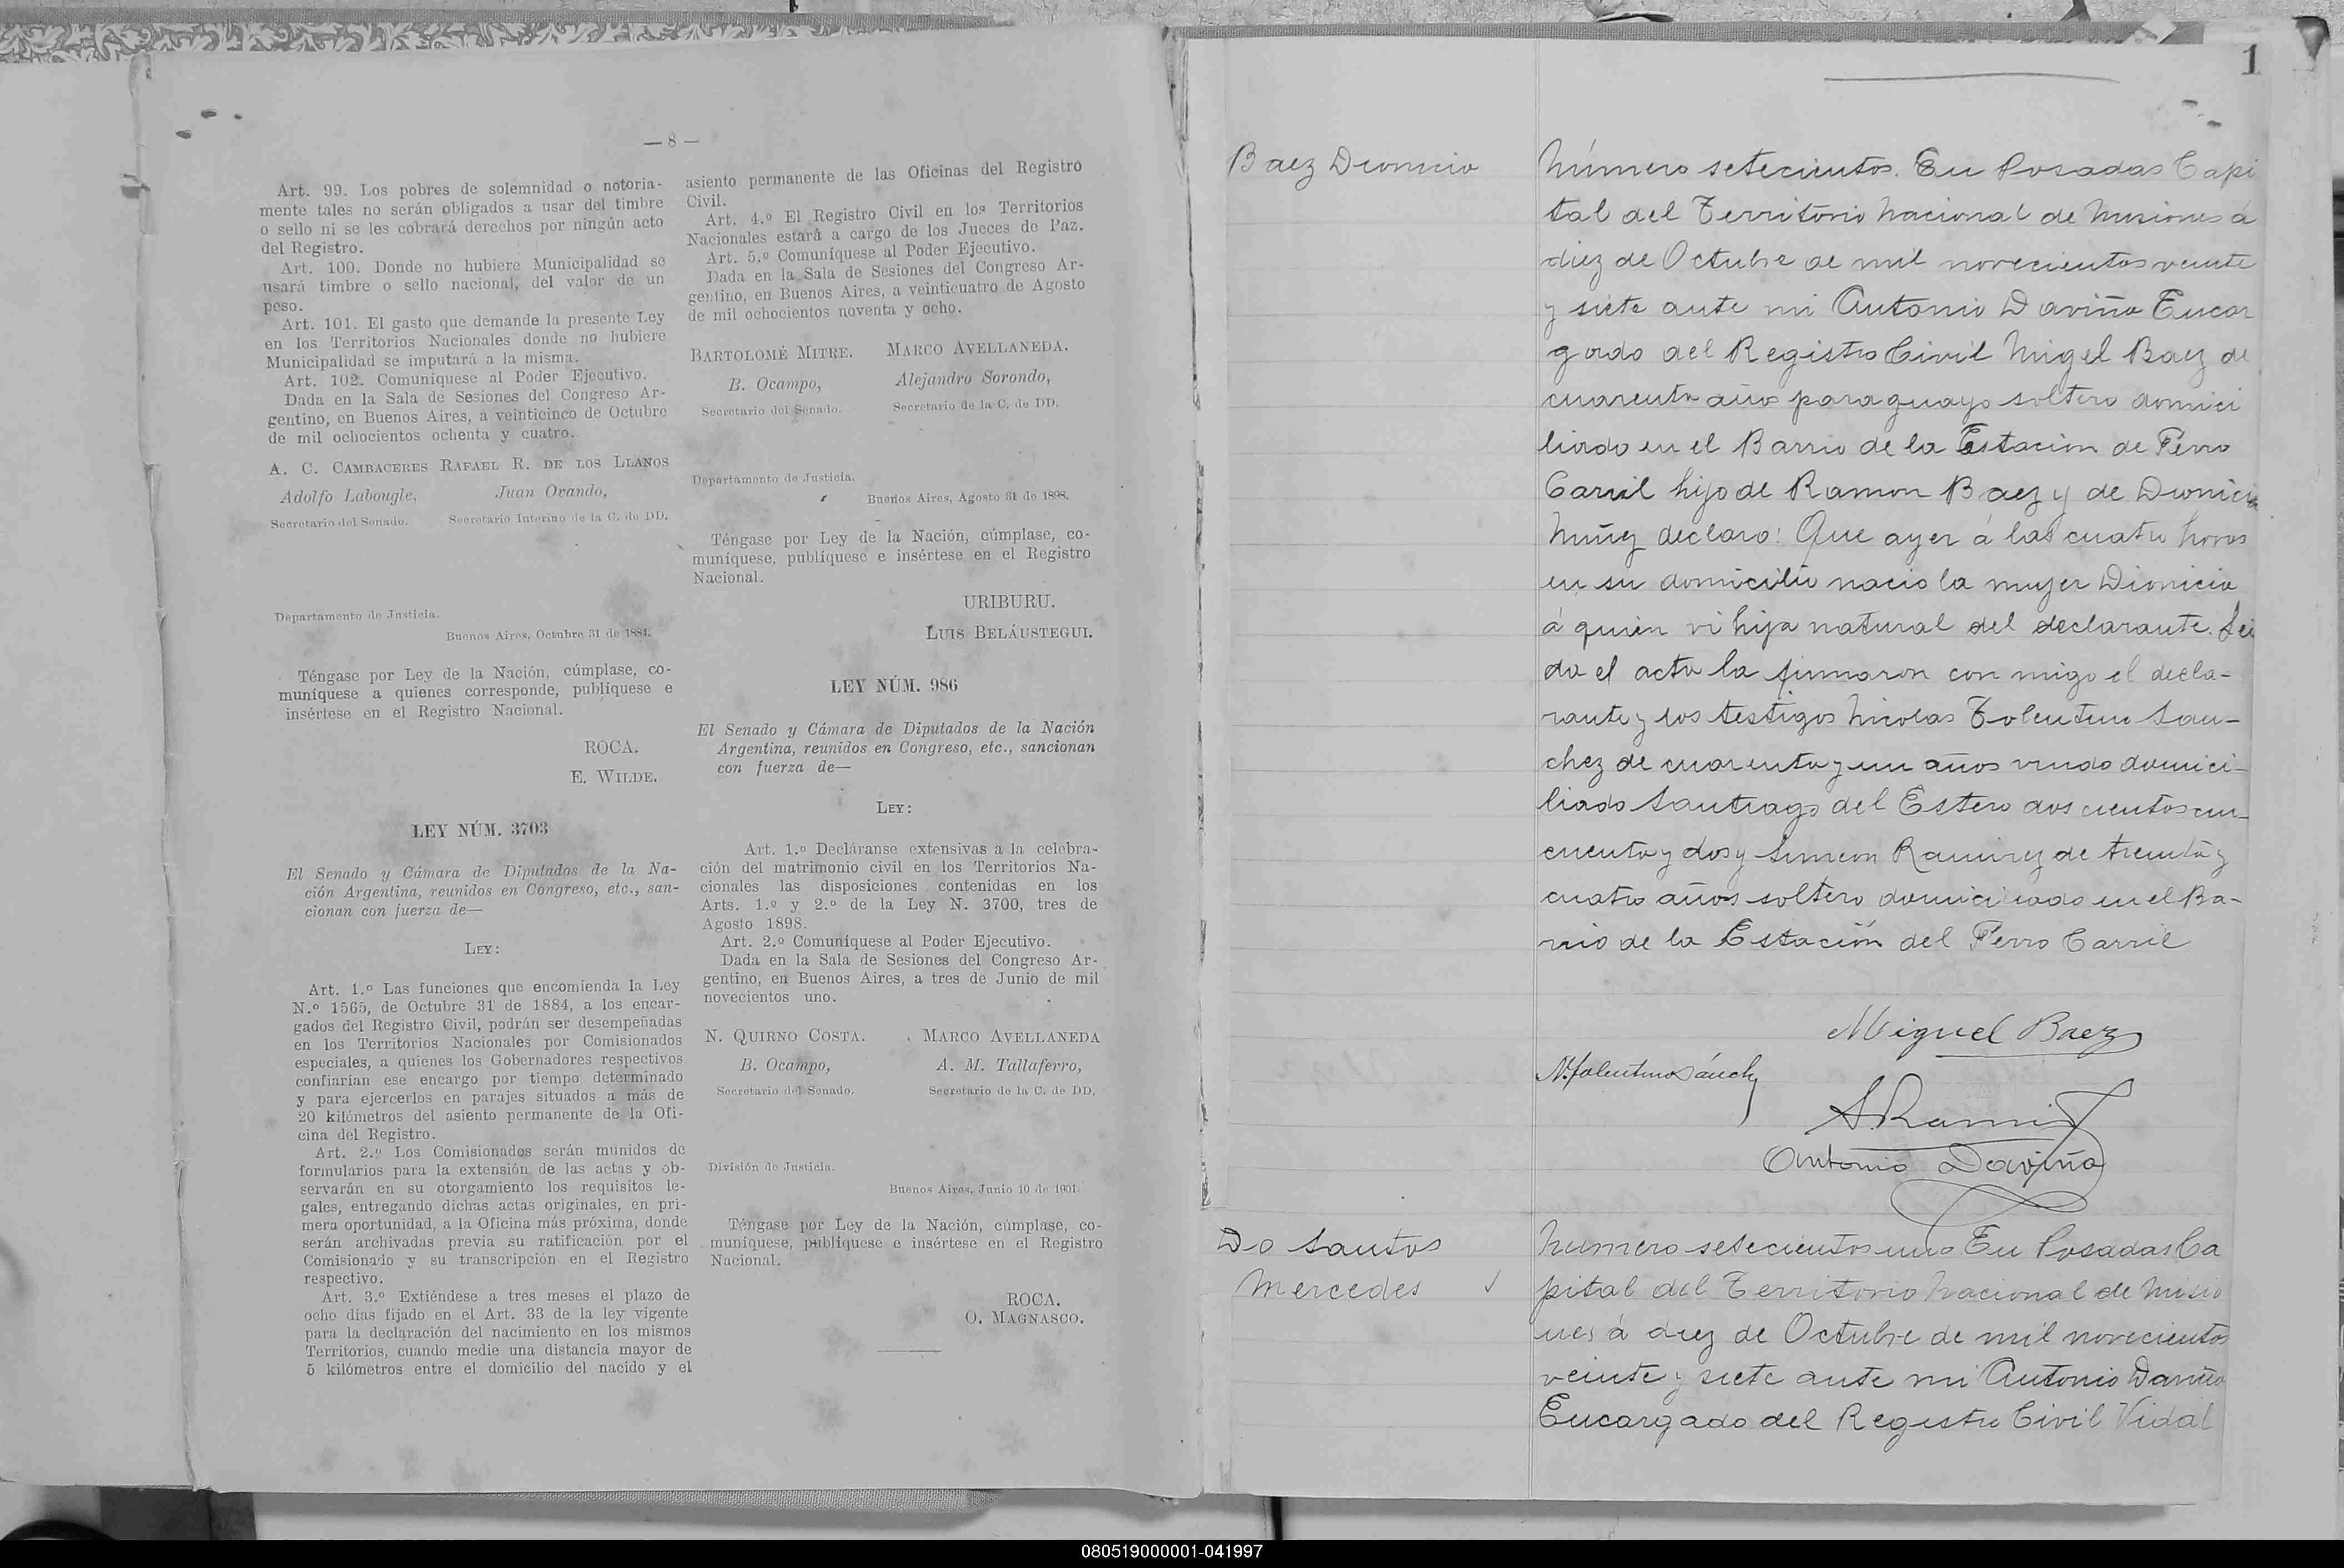 — 8 —
Art. 99. Los pobres de solemnidad o notoria-
mente tales no serán obligados a usar del timbre
o sello ni se les cobrará derechos por ningún acto
del Registro.
Art. 100. Donde no hubiere Municipalidad se
usará timbre o sello nacional, del valor de un
peso.
Art. 101. El gasto que demande la presente Ley
en los Territorios Nacionales donde no hubiere
Municipalidad se imputará a la misma.
Art. 102. Comuníquese al Poder Ejecutivo.
Dada en la Sala de Sesiones del Congreso Ar-
gentino, en Buenos Aires, a veinticinco de Octubre
de mil ochocientos ochenta y cuatro.
A. C. CAMBACERES RAFAEL R. DE LOS LLANOS
Adolfo Labougle, Juan Ovando,
Secretario del Senado. Secretario Interino de la C. de DD.
Departamento de Justicia.
Buenos Aires, Octubre 31 de 1884.
Téngase por Ley de la Nación, cúmplase, co-
muníquese a quienes corresponde, publíquese e
insértese en el Registro Nacional.
ROCA.
E. WILDE.
LEY NÚM. 3703
El Senado y Cámara de Diputados de la Na-
ción Argentina, reunidos en Congreso, etc., san-
cionan con fuerza de—
LEY:
Art. 1.º Las funciones que encomienda la Ley
N.º 1565, de Octubre 31 de 1884, a los encar-
gados del Registro Civil, podrán ser desempeñadas
en los Territorios Nacionales por Comisionados
especiales, a quienes los Gobernadores respectivos
confiarían ese encargo por tiempo determinado
y para ejercerlos en parajes situados a más de
20 kilómetros del asiento permanente de la Ofi-
cina del Registro.
Art. 2.º Los Comisionados serán munidos de
formularios para la extensión de las actas y ob-
servarán en su otorgamiento los requisitos le-
gales, entregando dichas actas originales, en pri-
mera oportunidad, a la Oficina más próxima, donde
serán archivadas previa su ratificación por el
Comisionado y su transcripción en el Registro
respectivo.
Art. 3.º Extiéndese a tres meses el plazo de
ocho días fijado en el Art. 33 de la ley vigente
para la declaración del nacimiento en los mismos
Territorios, cuando medie una distancia mayor de
5 kilómetros entre el domicilio del nacido y el
asiento permanente de las Oficinas del Registro
Civil.
Art. 4.º El Registro Civil en los Territorios
Nacionales estará a cargo de los Jueces de Paz.
Art. 5.º Comuníquese al Poder Ejecutivo.
Dada en la Sala de Sesiones del Congreso Ar-
gentino, en Buenos Aires, a veinticuatro de Agosto
de mil ochocientos noventa y ocho.
BARTOLOMÉ MITRE. MARCO AVELLANEDA.
B. Ocampo, Alejandro Sorondo,
Secretario del Senado. Secretario de la C. de DD.
Departamento de Justicia.
Buenos Aires, Agosto 31 de 1898.
Téngase por Ley de la Nación, cúmplase, co-
muníquese, publíquese e insértese en el Registro
Nacional.
URIBURU.
LUIS BELÁUSTEGUI.
LEY NÚM. 986
El Senado y Cámara de Diputados de la Nación
Argentina, reunidos en Congreso, etc., sancionan
con fuerza de—
LEY:
Art. 1.º Decláranse extensivas a la celebra-
ción del matrimonio civil en los Territorios Na-
cionales las disposiciones contenidas en los
Arts. 1.º y 2.º de la Ley N. 3700, tres de
Agosto 1898.
Art. 2.º Comuníquese al Poder Ejecutivo.
Dada en la Sala de Sesiones del Congreso Ar-
gentino, en Buenos Aires, a tres de Junio de mil
novecientos uno.
N. QUIRNO COSTA. MARCO AVELLANEDA
B. Ocampo, A. M. Tallaferro,
Secretario del Senado. Secretario de la C. de DD.
División de Justicia.
Buenos Aires, Junio 10 de 1901.
Téngase por Ley de la Nación, cúmplase, co-
muníquese, publíquese e insértese en el Registro
Nacional.
ROCA.
O. MAGNASCO.
1
Baez Dionicia
Número setecientos. En Posadas Capi
tal del Territorio Nacional de Misiones á
diez de Octubre de mil novecientos veinte
y siete ante mi Antonio Daviña Encar
gado del Registro Civil Migel Baez de
cuarenta años paraguayo soltero domici
liado en el Barrio de la Estacion de Ferro
Carril hijo de Ramon Baez y de Dionicia
Nuñez declaro: Que ayer á las cuatro horas
en su domicilio nacio la mujer Dionicia
á quien vi hija natural del declarante. Lei
da el acta la firmaron con migo el decla-
rante y los testigos Nicolas Tolentino San-
chez de cuarenta y un años viudo domici-
liado Santiago del Estero dos cientos cin-
cuenta y dos y Simeon Ramirez de treinta y
cuatro años soltero domiciliado en el Ba-
rrio de la Estación del Ferro Carril
Miguel Baez
N. Tolentino Sánchez
S. Ramirez
Antonio Daviña
Do Santos
Mercedes
Número setecientos uno En Posadas Ca
pital del Territorio Nacional de Misio
nes á diez de Octubre de mil novecientos
veinte y siete ante mi Antonio Daviña
Encargado del Registro Civil Vidal
080519000001-041997